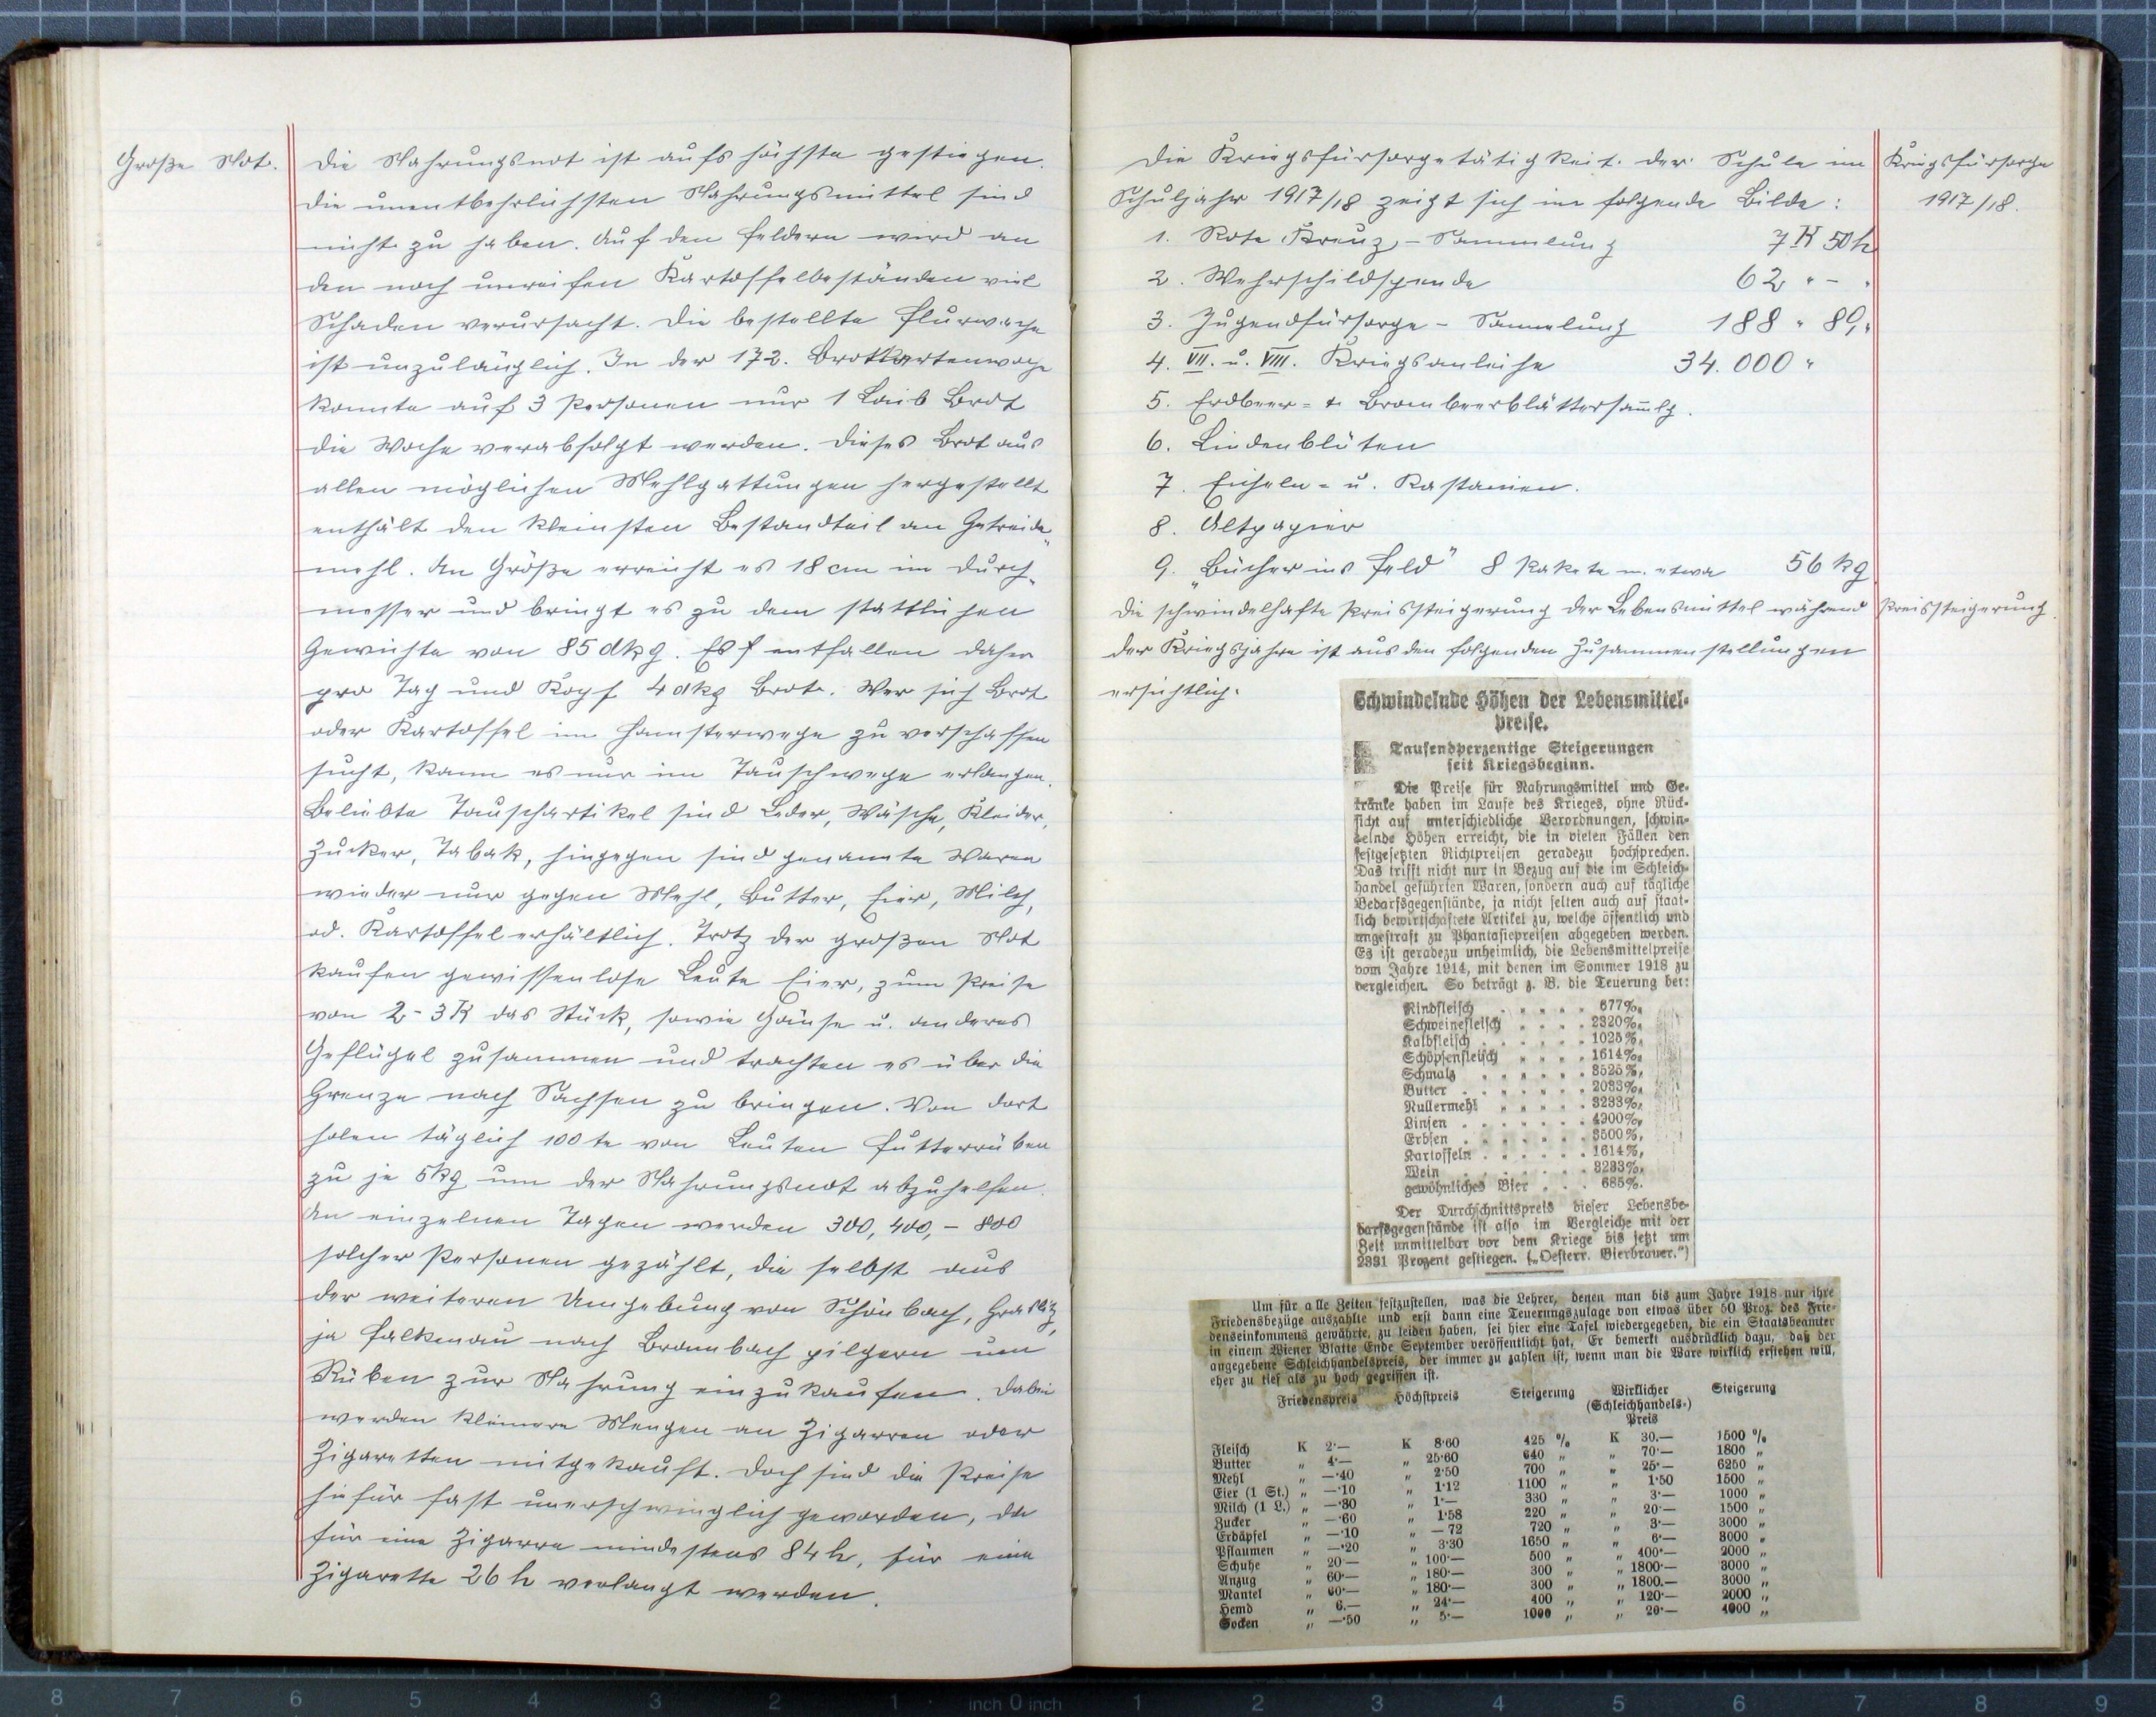 Große Not.
Die Nahrungsnot ist aufs höchste gestiegen.
Die unentbehrlichsten Nahrungsmittel sind
nicht zu haben. Auf den Feldern wird an
den noch unreifen Kartoffelbeständen viel
Schaden verursacht. Die bestellte Flurwache
ist unzulänglich. In der 172. Brotkartenwoche
konnte auf 3 Personen nur 1 Laib Brot
die Woche verabfolgt werden. Dieses Brot aus
allen möglichen Mehlgattungen hergestellt
enthält den kleinsten Bestandteil an Getreide-
mehl. An Größe erreicht es 18 cm im Durch-
messer und bringt es zu dem stattlichen
Gewichte von 85 dkg. Es entfallen daher
pro Tag und Kopf 4 dkg Brot. Wer sich Brot
oder Kartoffel im Hamsterwege zu verschaffen
sucht, kann es nur im Tauschwege erlangen.
Beliebte Tauschartikel sind Leder, Wäsche, Kleider,
Zucker, Tabak, hingegen sind genannte Waren
wieder nur gegen Mehl, Butter, Eier, Milch,
od. Kartoffel erhältlich. Trotz der großen Not
kaufen gewissenlose Leute Eier, zum Preise
von 2-3 K das Stück, sowie Gänse u. anderes
Geflügel zusammen und trachten es über die
Grenze nach Sachsen zu bringen. Von dort
holen täglich 100 te von Leuten Futterrüben
zu je 5 kg um der Nahrungsnot abzuhelfen.
An einzelnen Tagen werden 300, 400, - 800
solcher Personen gezählt, die selbst aus
der weiteren Umgebung von Schönbach, Graslitz,
ja Falkenau nach Brambach pilgern um
Rüben zur Nahrung einzukaufen. Dabei
werden kleinere Mengen an Zigarren oder
Zigaretten mitgekauft. Doch sind die Preise
hiefür fast unerschwinglich geworden, da
für eine Zigarre mindestens 84 h, für eine
Zigarette 26 h verlangt werden.
Die Kriegsfürsorgetätigkeit der Schule im
Schuljahr 1917/18 zeigt sich im folgende Bilde:
Kriegsfürsorge
1917/18.
1. Rote Kreuz-Sammlung 7 K 50 h
2. Wehrschildspende 62 " - "
3. Jugendfürsorge-Sammlung 188 "
4. VII. u. VIII. Kriegsanleihe 34.000 "
5. Erdbeer- u. Brombeerblättersam̅lg.
6. Lindenblüten
7. Eicheln- u. Kastanien.
8. Altpapier
9. „Bücher ins Feld" 8 Pakete m. etwa 56 kg
Die schwindelhafte Preissteigerung der Lebensmittel während
der Kriegsjahre ist aus den folgenden Zusammenstellungen
ersichtlich:
Preissteigerung.
Schwindelnde Höhen der Lebensmittel-
preise.
Tausendperzentige Steigerungen
seit Kriegsbeginn.
Die Preise für Nahrungsmittel und Ge-
tränke haben im Laufe des Krieges, ohne Rück-
sicht auf unterschiedliche Verordnungen, schwin-
delnde Höhen erreicht, die in vielen Fällen den
festgesetzten Richtpreisen geradezu hochsprechen.
Das trifft nicht nur in Bezug auf die im Schleich-
handel geführten Waren, sondern auch auf tägliche
Bedarfsgegenstände, ja nicht selten auch auf staat-
lich bewirtschaftete Artikel zu, welche öffentlich und
ungestraft zu Phantasiepreisen abgegeben werden.
Es ist geradezu unheimlich, die Lebensmittelpreise
vom Jahre 1914, mit denen im Sommer 1918 zu
vergleichen. So beträgt z. B. die Teuerung bei:
Rindfleisch . . . . . 677%,
Schweinefleisch . . . . 2320%,
Kalbfleisch . . . . . . 1025%,
Schöpsenfleisch . . . . 1614%,
Schmalz . . . . . . 3525%,
Butter . . . . . . . 2033%,
Nullermehl . . . . . 3233%,
Linsen . . . . . . . 4900%,
Erbsen . . . . . . . 3500%,
Kartoffeln . . . . . . 1614%,
Wein . . . . . . . 3233%,
gewöhnliches Bier . . . 685%.
Der Durchschnittspreis dieser Lebensbe-
darfsgegenstände ist also im Vergleiche mit der
Zeit unmittelbar vor dem Kriege bis jetzt um
2331 Prozent gestiegen. („Oesterr. Bierbrauer.")
Um für alle Zeiten festzustellen, was die Lehrer, denen man bis zum Jahre 1918 nur ihre
Friedensbezüge auszahlte und erst dann eine Teuerungszulage von etwas über 50 Proz. des Frie-
denseinkommens gewährte, zu leiden haben, sei hier eine Tafel wiedergegeben, die ein Staatsbeamter
in einem Wiener Blatte Ende September veröffentlicht hat. Er bemerkt ausdrücklich dazu, daß der
angegebene Schleichhandelspreis, der immer zu zahlen ist, wenn man die Ware wirklich erstehen will,
eher zu tief als zu hoch gegriffen ist.
Friedenspreis Höchstpreis Steigerung Wirklicher (Schleichhandels-) Preis Steigerung
Fleisch K 2·— K 8·60 425 % K 30.— 1500 %
Butter " 4·— " 25·60 640 " " 70·— 1800 "
Mehl " —·40 " 2·50 700 " " 25·— 6250 "
Eier (1 St.) " —·10 " 1·12 1100 " " 1·50 1500 "
Milch (1 L.) " —·30 " 1·— 330 " " 3·— 1000 "
Zucker " —·60 " 1·58 220 " " 20·— 1500 "
Erdäpfel " —·10 " —72 720 " " 3·— 3000 "
Pflaumen " —·20 " 3·30 1650 " " 6·— 3000 "
Schuhe " 20·— " 100·— 500 " " 400·— 2000 "
Anzug " 60·— " 180·— 300 " " 1800·— 3000 "
Mantel " 60·— " 180·— 300 " " 1800.— 3000 "
Hemd " 6.— " 24·— 400 " " 120·— 2000 "
Socken " —·50 " 5·— 1000 " " 20·— 4000 "
8 7 6 5 4 3 2 1 inch 0 inch 1 2 3 4 5 6 7 8 9